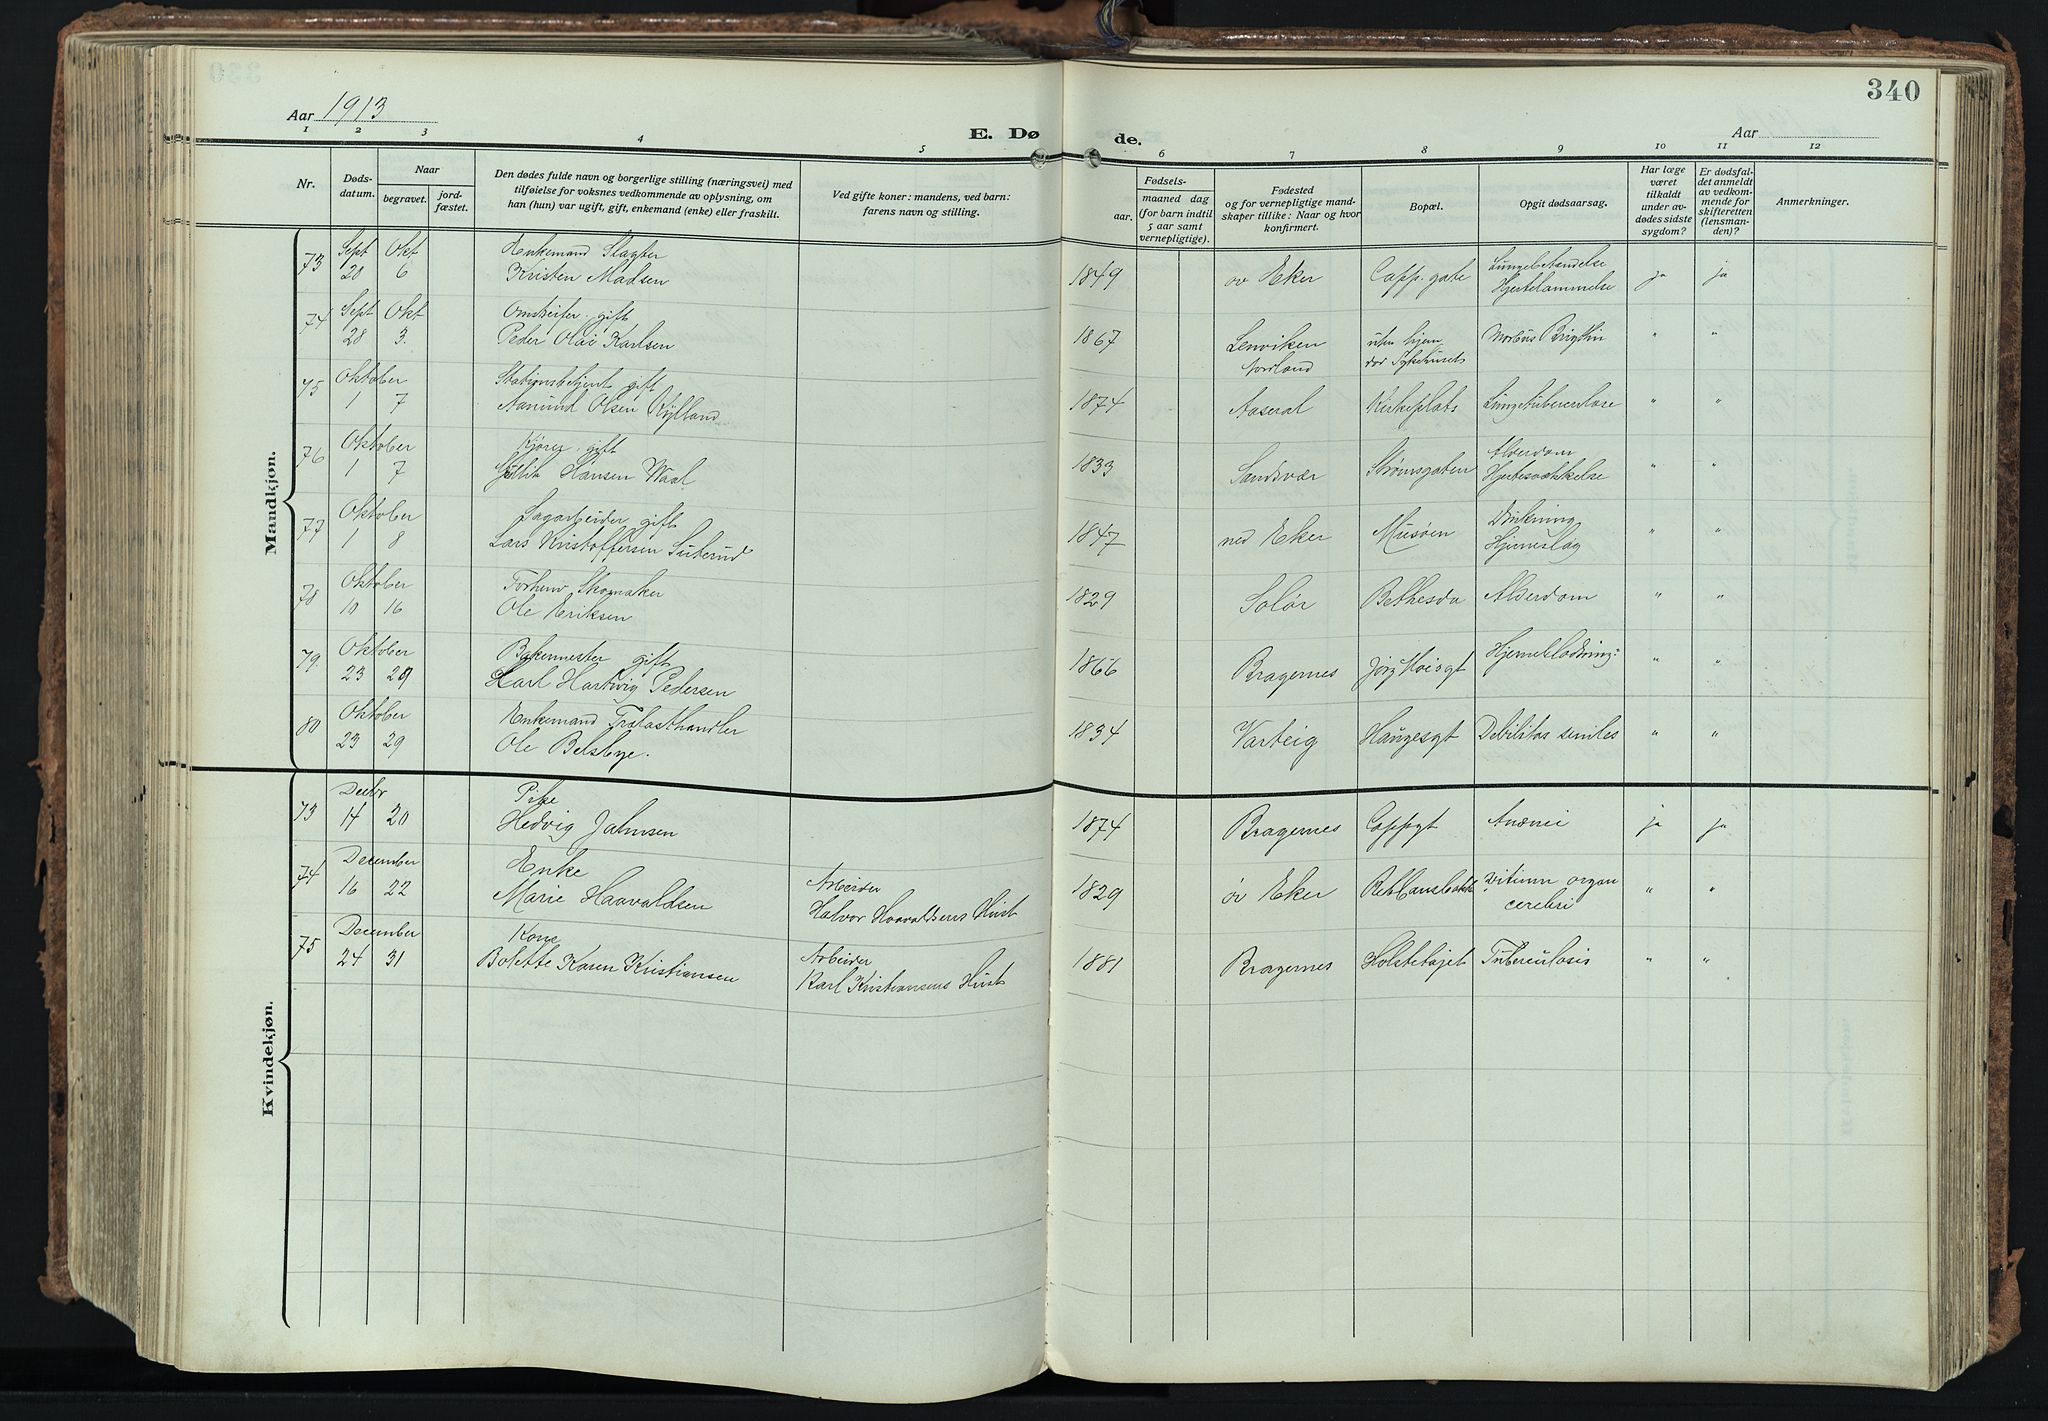 340
Aar 1913
E. Dø de.
Aar
1 2 3 4 5 6 7 8 9 10 11 12
Nr.
Døds-
datum.
Naar
begravet.
jord-
fæstet.
Den dødes fulde navn og borgerlige stilling (næringsvei) med
tilføielse for voksnes vedkommende av oplysning, om
han (hun) var ugift, gift, enkemand (enke) eller fraskilt.
Ved gifte koner: mandens, ved barn:
farens navn og stilling.
Fødsels-
aar. maaned dag
(for barn indtil
5 aar samt
vernepligtige).
Fødested
og for vernepligtige mand-
skaper tillike: Naar og hvor
konfirmert.
Bopæl.
Opgit dødsaarsag.
Har læge
været
tilkaldt
under av-
dødes sidste
sygdom?
Er dødsfal-
det anmeldt
av vedkom-
mende for
skifteretten
(lensman-
den)?
Anmerkninger.
Mandkjøn.
Sept Okt Enkemand Slagter Lungebetændelse
73 20 6 Kristen Madsen 1849 øv Eker Capp. gate Hjertelammelse ja ja
Sept Okt gift
74 28 3. Peder Olai Karlsen 1867 Lenviken uten hjem Morbus Brigthii " "
Nordland Sykehuset
Oktober Stationsbetjent gift
75 1 7 Aamund Olsen Kylland 1874 Aaseral Kirkeplats Lungetuberculose " "
Oktober Kjører gift Alderdom
76 1 7 Hansen Waal 1833 Sandsvær Strømsgaten Hjertesvækkelse " "
Oktober Sagarbeider gift Drukning
77 1 8 Lars Kristoffersen 1847 ned Eker Musøen Hjerneslag " "
Oktober Forhenv Skomaker
78 10 16 Ole Eriksen 1829 Solør Bethesda Alderdom " "
Oktober Bakermester gift
79. 23 29 Karl Hartvig Pedersen 1866 Bragernes Hjerneblødning: " "
Oktober Enkemand Trælasthandler
80 23 29 Ole Belsbye. 1834 Varteig Haugesgt Debilitas seniles " "
Kvindekjøn.
Decbr Pike
73 14 20 Hedvig Jahnsen 1874 Bragernes Cappgt Anæmi ja ja
December Enke Arbeider
74 16 22 Marie Haavaldsen Halvor Haavaldsens Hust 1829 øv Eker Vitium organ " "
cerebri
December Kone Arbeider
75 24 31 Bolette Karen Kristiansen Karl Kristiansens Hust 1881 Bragernes Tuberculosis " "